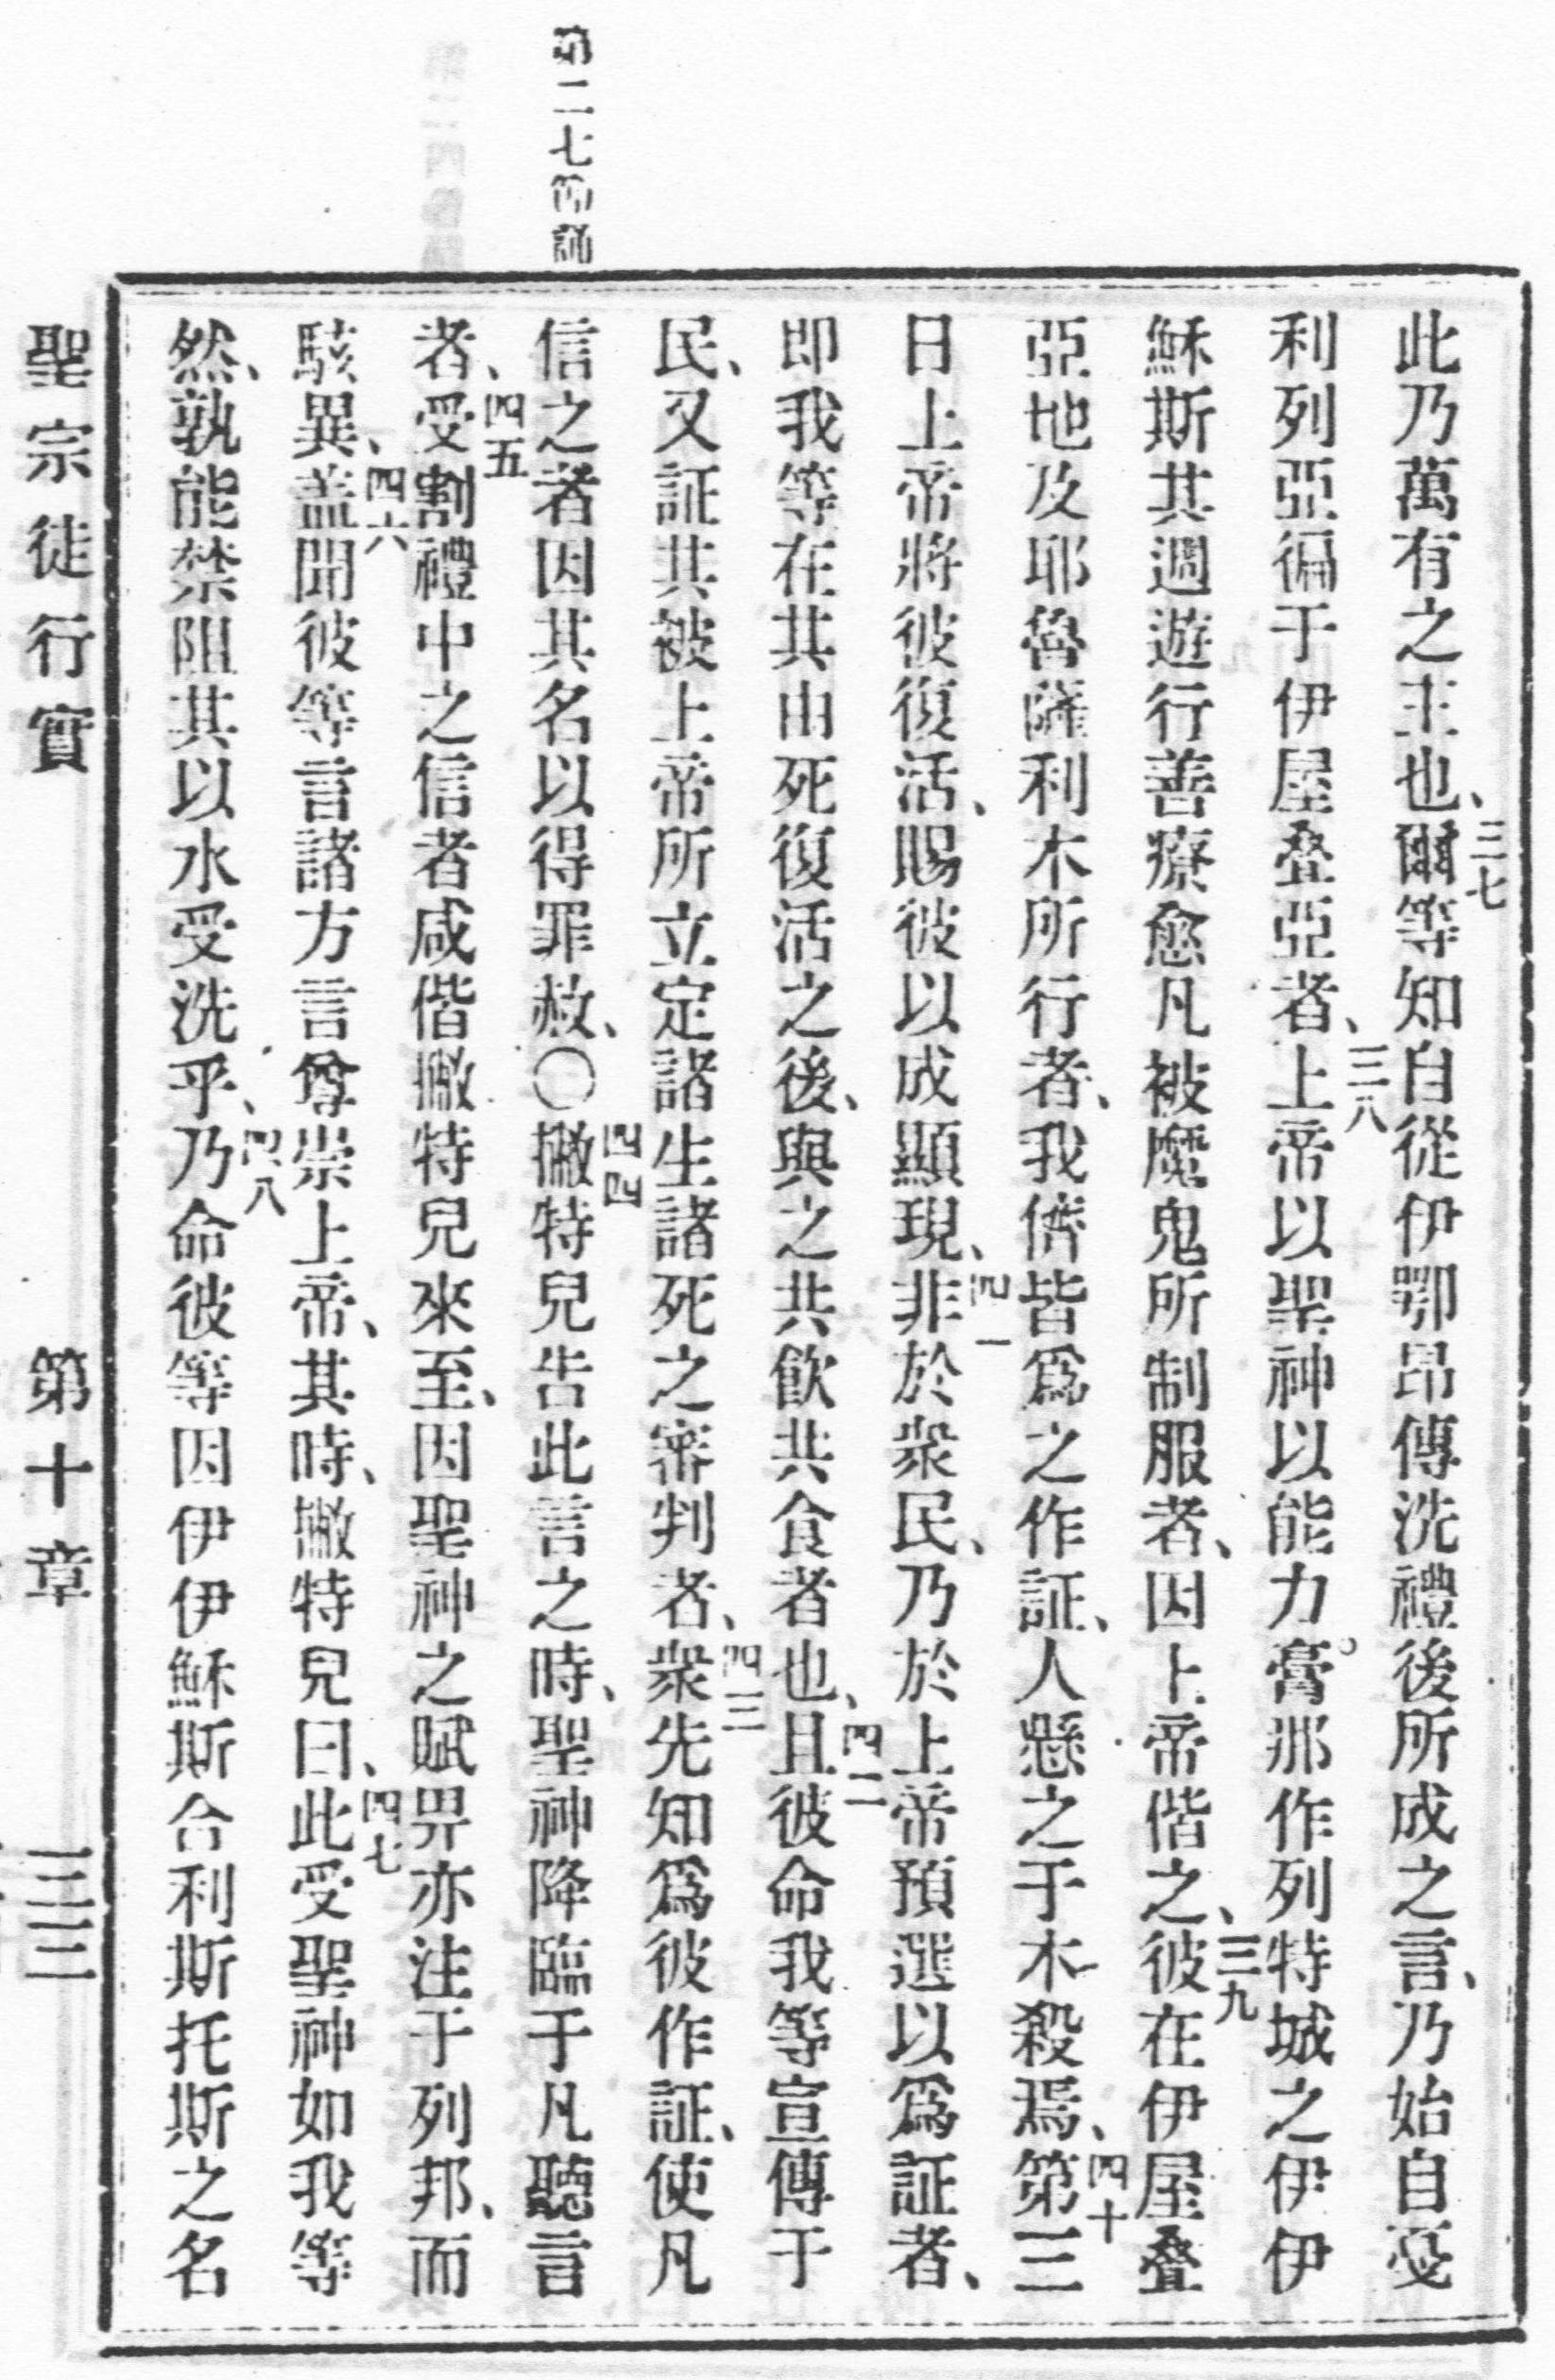 第二七節誦
此乃萬有之主也、三七爾等知自從伊鄂昂傳洗禮後所成之言、乃始自戞
利列亞徧于伊屋叠亞者、三八上帝以聖神以能力膏那作列特城之伊伊
穌斯其週遊行善療愈凡被魔鬼所制服者、因上帝偕之、三九彼在伊屋叠
亞地及耶魯薩利木所行者、我儕皆爲之作証、人懸之于木殺焉、四十第三
日上帝將彼復活、賜彼以成顯現、四一非於衆民、乃於上帝預選以爲証者、
即我等在其由死復活之後、與之共飲共食者也、四二且彼命我等宣傳于
民、又証其被上帝所立定諸生諸死之審判者、四三衆先知爲彼作証、使凡
信之者因其名以得罪赦、〇四四撇特兒告此言之時、聖神降臨于凡聽言
者、四五受割禮中之信者咸偕撇特兒來至、因聖神之賦畀亦注于列邦、而
駭異、四六盖聞彼等言諸方言尊崇上帝、其時、撇特兒曰、四七此受聖神如我等
然、孰能禁阻其以水受洗乎、四八乃命彼等因伊伊穌斯合利斯托斯之名
聖宗徒行實　第十章　三三